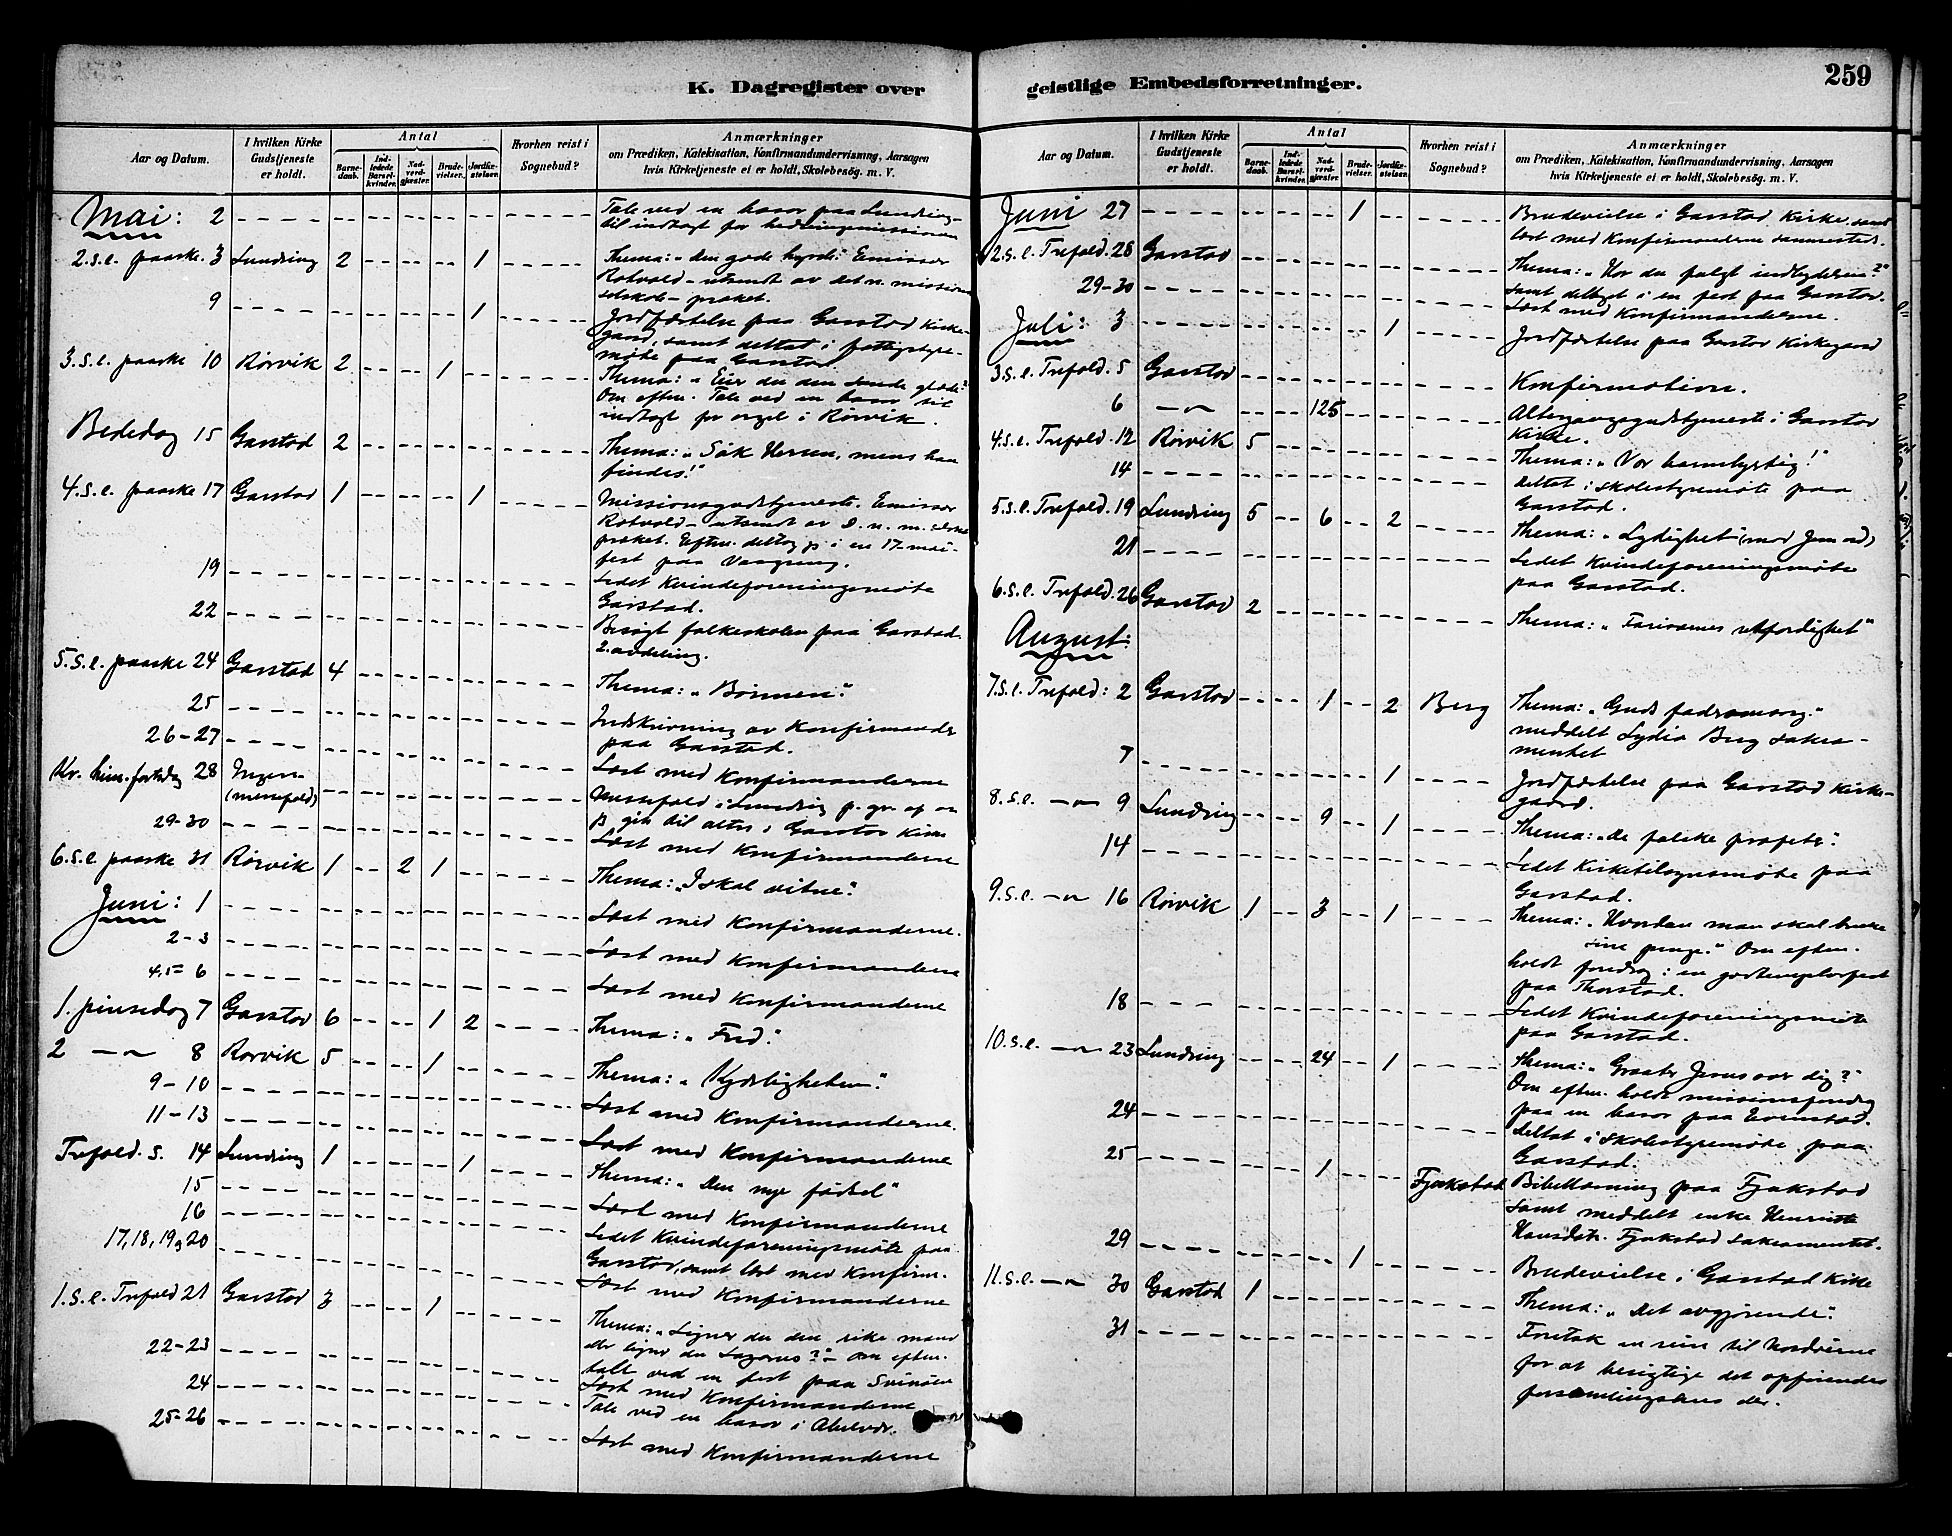 K. Dagregister over
Aar og Datum.
I hvilken Kirke Gudstjeneste er holdt.
Antal
Barnedaab.
Indledede Barselkvinder.
Nadverdgjæster.
Brudevielser.
Jordfæstelser.
Hvorhen reist i Sognebud?
Anmærkninger
om Prædiken, Katekisation, Konfirmandundervisning, Aarsagen
hvis Kirketjeneste ei er holdt, Skolebesøg. m. V.
Mai: 2 Tale ved en basar paa Lundring
til indtægt for hedningemissionen
2.s.e. paaske. 3 Lundring 2 1 Thema: „Den gode hyrde." Emissær
Rotvold – utsendt av det n. missions
selskab – præket.
9 1 Jordfæstelse paa Garstad Kirke-
gaard, samt deltat i fattigstyre-
møte paa Garstad.
3.s.e. paaske 10 Rørvik 2 1 Thema: „Eier du den sande glæde?"
Om eftm. Tale ved en basar til
indtægt for orgel i Rørvik.
Bededag 15 Garstad 2 Thema: „Søk Herren, mens han
findes!"
4.s.e. paaske 17 Garstad 1 1 Missionsgudstjeneste. Emissær
Rotvold – utsendt av d. n. m. selsk.
præket. Eftm. deltog jeg i en 17-mai-
fest paa
19 Ledet Kvindeforeningsmøte
Garstad.
22 Besøgt folkeskolen paa Garstad
2. avdeling.
5.s.e. paaske 24 Garstad 4 Thema: „Bønnen."
25 Indskrivning av Konfirmander
paa Garstad.
26-27 Læst med Konfirmanderne
Kr. him.fartsdag 28 Ingen (messefald) Messefald i Lundring p. gr. af at
jeg gik til alters i Garstad Kirke
29-30 Læst med Konfirmanderne
6.s.e. paaske 31 Rørvik 1 2 1 Thema: „I skal vitne."
Juni: 1 Læst med Konfirmanderne.
2-3 Læst med Konfirmanderne
4,5- 6 Læst med Konfirmanderne
1. pinsedag 7 Garstad 6 1 2 Thema: „Fred."
2 —"— 8 Rørvik 5 1 Thema: „Kjærligheten."
9-10 Læst med Konfirmanderne.
11-13 Læst med Konfirmanderne
Trefold. s. 14 Lundring 1 1 Thema: „Den nye fødsel"
15 Læst med Konfirmanderne
16 Ledet Kvindeforeningsmøte paa
Garstad, samt læst med Konfirm.
17,18,19og20 Læst med Konfirmanderne
1.s.e. Trefold 21 Garstad 3 1 Thema: „Ligner du den rike mand
eller ligner du Lazarus?" – Om eftm.
talt ved en fest paa Svinøen
22-23 Læst med Konfirmanderne
24 Tale ved en basar i Abelvær.
25-26 Læst med Konfirmanderne
geistlige Embedsforretninger.
259
Aar og Datum.
I hvilken Kirke Gudstjeneste er holdt.
Antal
Barnedaab.
Indledede Barselkvinder.
Nadverdgjæster.
Brudevielser.
Jordfæstelser.
Hvorhen reist i Sognebud?
Anmærkninger
om Prædiken, Katekisation, Konfirmandundervisning, Aarsagen
hvis Kirketjeneste ei er holdt, Skolebesøg. m. V.
Juni 27 1 Brudevielse i Garstad Kirke. samt
læst med Konfirmanderne sammesteds.
2.s.e. Trefold. 28 Garstad Thema: „Har du fulgt indbydelsen?"
samt deltaget i en fest paa Garstad.
29-30 Læst med Konfirmanderne.
Juli: 3 1 Jordfæstelse paa Garstad Kirkegaard
3.s.e. Trefold. 5 Garstad Konfirmation.
6 —"— 125 Altergangsgudstjeneste i Garstad
Kirke.
4.s.e. Trefold. 12 Rørvik 5 Thema: „Vær barmhjertig!"
14 Deltat i skolestyremøte paa
Garstad.
5.s.e. Trefold. 19 Lundring 5 6 2 Thema: „Lydighet (mod Jesu ord)
21 Ledet Kvindeforeningsmøte
paa Garstad.
6.s.e. Trefold. 26 Garstad 2 Thema: „Farisæernes retfærdighet"
August:
7.s.e. Trefold: 2 Garstad 1 2 Berg Thema: „Guds fadromsorg."
meddelt Lydia Berg sakra-
mentet
7 1 Jordfæstelse paa Garstad Kirke-
gaard.
8.s.e. —"— 9 Lundring 9 1 Thema: „De falske profeter."
14 Ledet Kirketilsynsmøte paa
Garstad.
9.s.e. —"— 16 Rørvik 1 3 1 Thema: „Hvordan man skal bruke
sine penge." Om eftm.
holdt foredrag i en godtemplarfest
paa Thorstad.
18 Ledet Kvindeforeningsmøte
paa Garstad.
10.s.e. —"— 23 Lundring 24 1 Thema: „Graater Jesus over dig?"
Om eftm. holdt missionsforedrag
paa en basar paa Evenstad.
24 Deltat i skolestyremøte paa
Garstad.
25 1 Fjukstad Bibellæsning paa Fjukstad
samt meddelt enke Henriette
Hansdtr. Fjukstad sakramentet.
29 1 Brudevielse i Garstad Kirke
11.s.e. —"— 30 Garstad 1 Thema: „Det avgjørende."
31 Foretak en reise til Nordværne
for at besigtige det opførendes
forsamlingshus der.